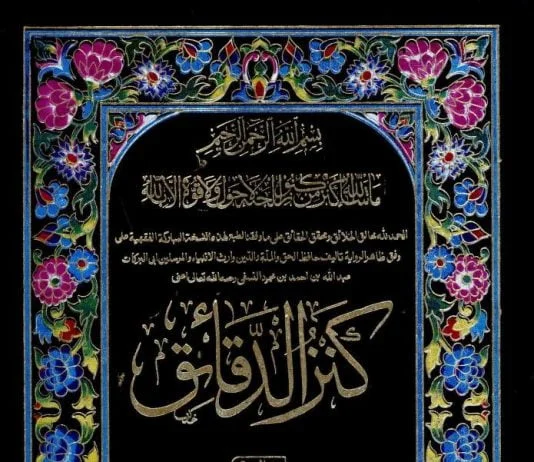 بسم الله الرحمن الرحيم
ما شاء الله كنز من كنوز الجنة لا حول ولا قوة الا بالله
الحمد لله خالق الخلائق ومحقق الحقائق على ما وفقنا لطبع هذه النسخة المباركة الفقهية على
وفق ظاهر الرواية تاليف حافظ الحق والملة والدين وارث الانبياء والمرسلين ابي البركات
عبد الله بن احمد بن محمود النسفي رحمه الله تعالى اعني
كنز الدقائق